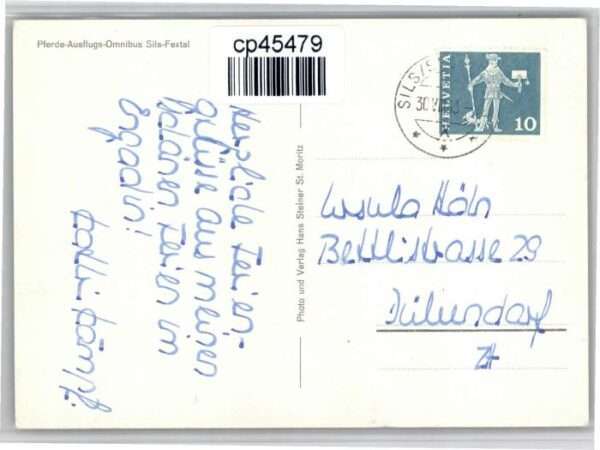 Pferde-Ausflugs-Omnibus Sils-Fextal
cp45479
SILS/S
HELVETIA
10
Herzliche Ferien-
grüsse aus meinen
schönen Ferien im
Engadin!
Photo und Verlag Hans Steiner St. Moritz
Ursula
Bettlistrasse 29
Dübendorf
ZH